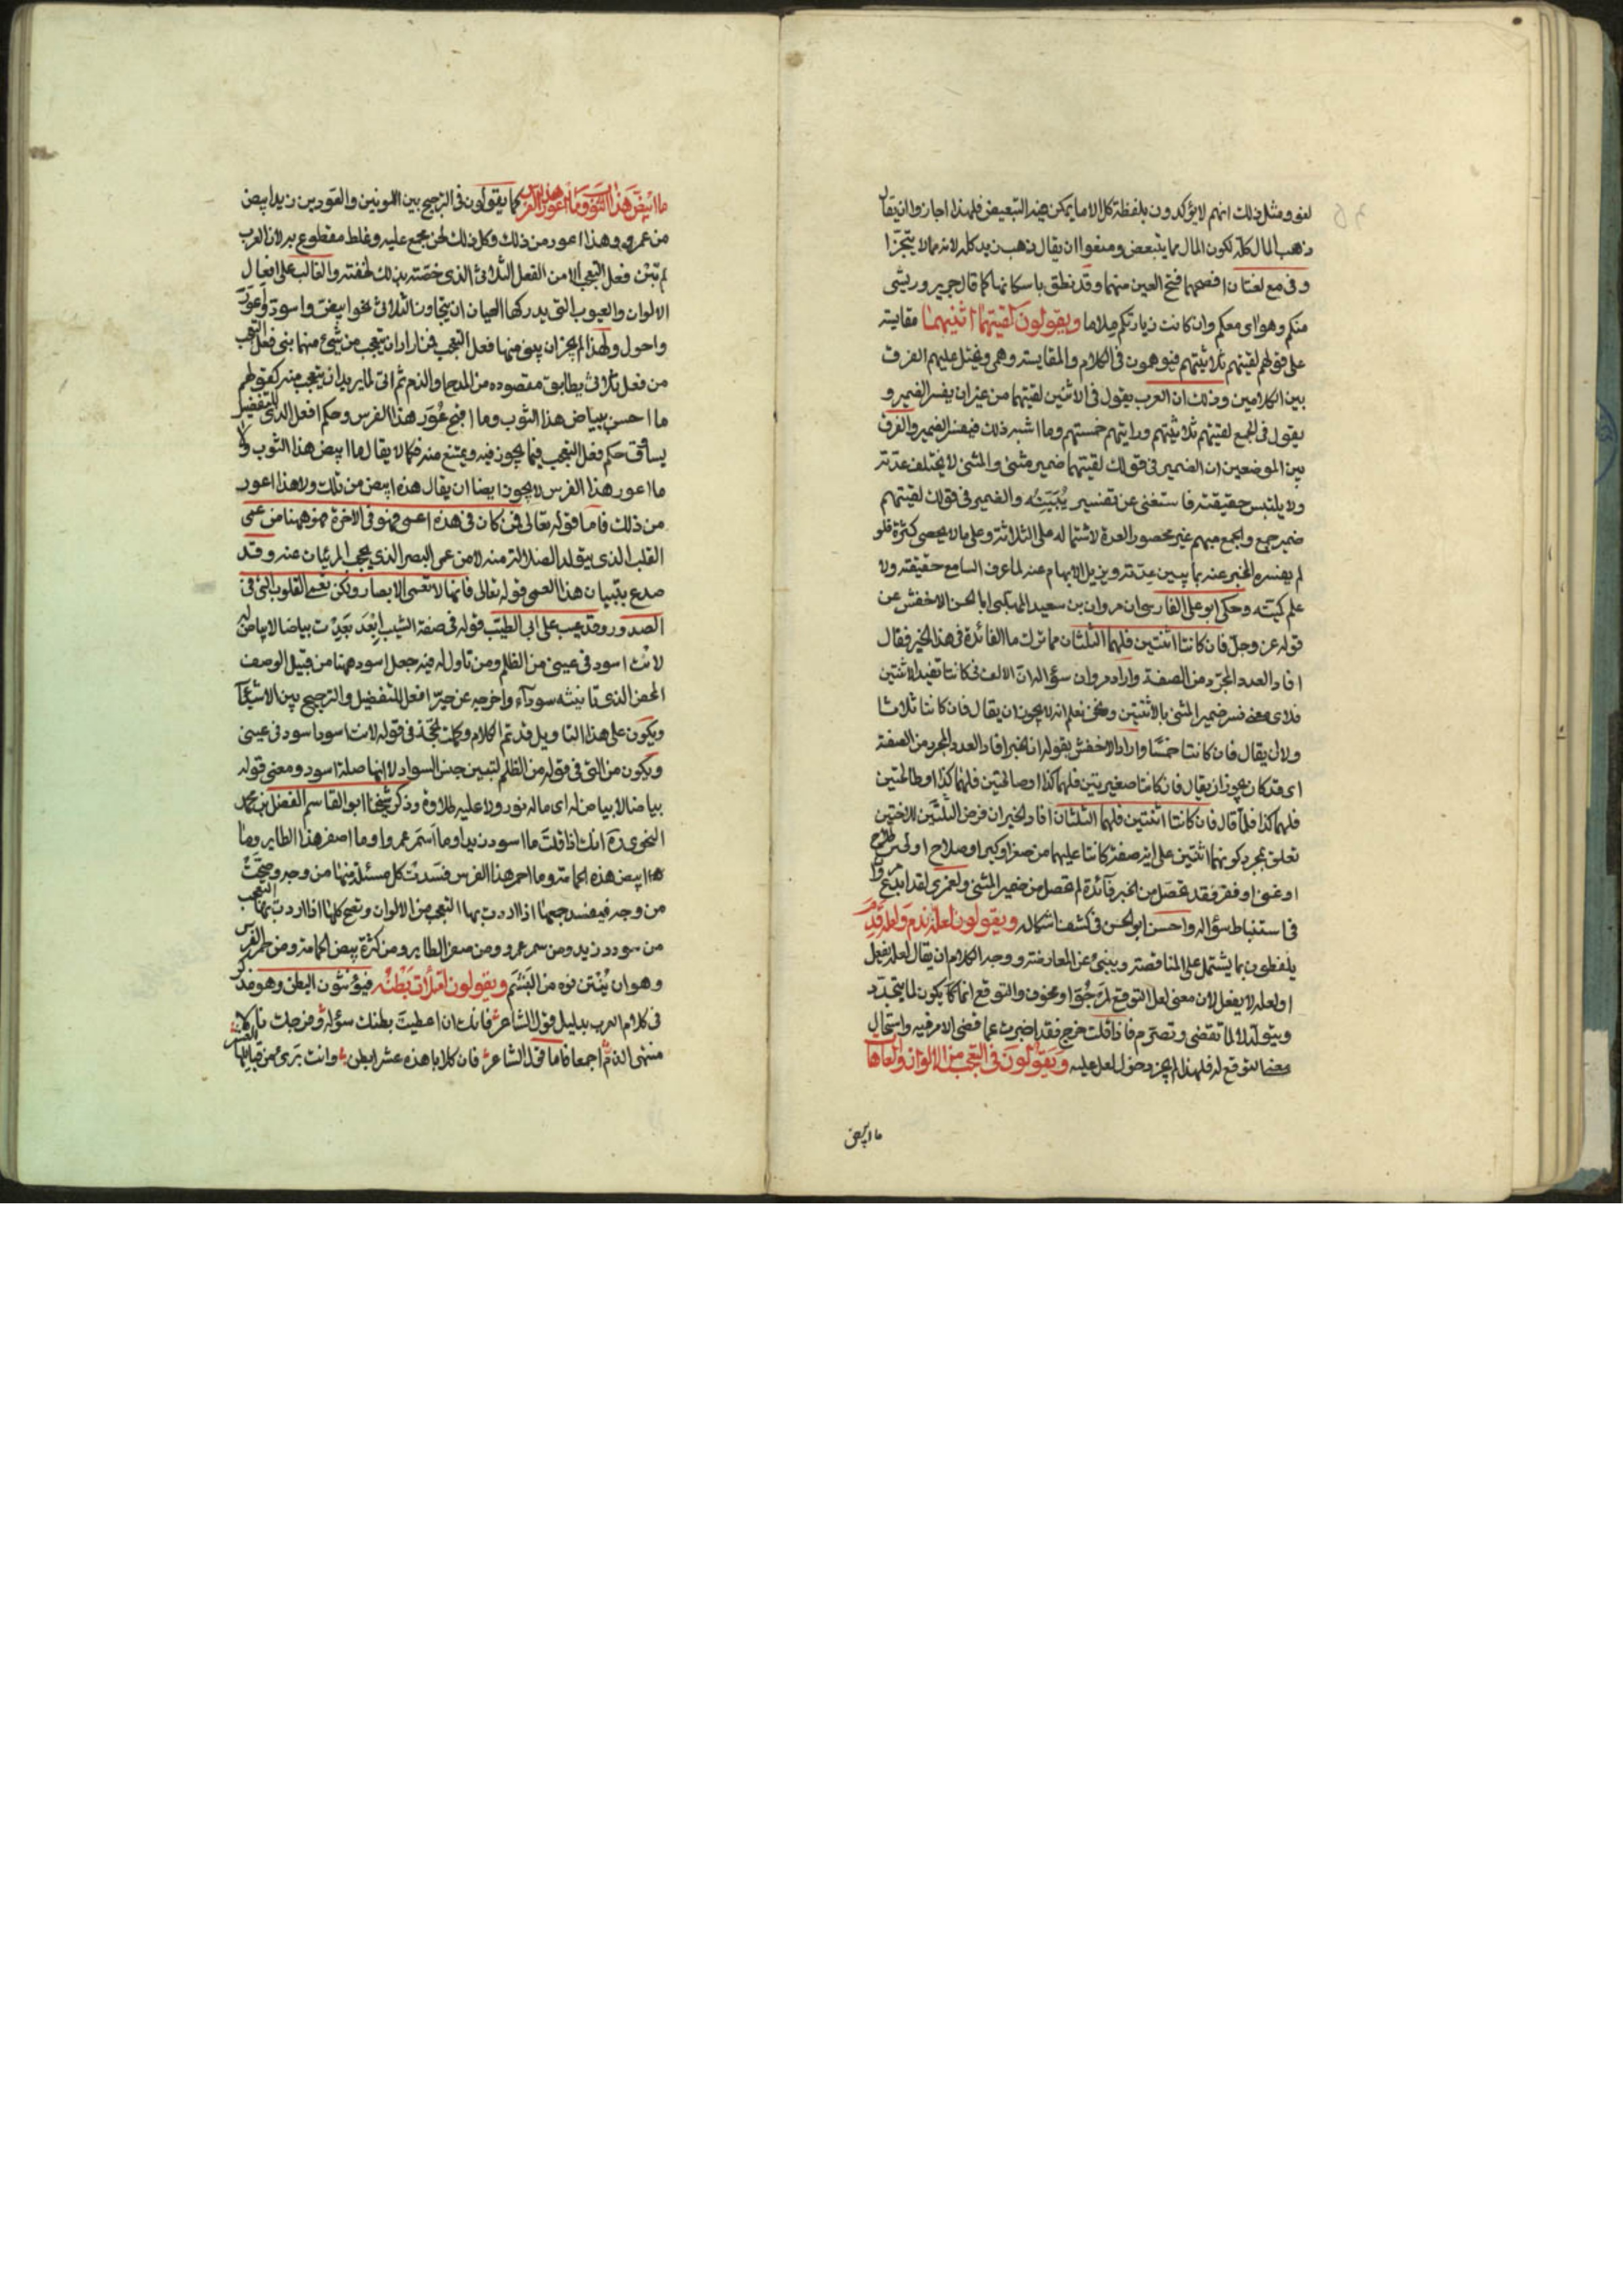 لغو ومثل ذلك انهم لا يؤكدون بلفظة كل الا ما يمكن فيه التبعيض فلهذا اجازوا ان يقال
ذهب المال كله لكون المال مما يتبعض ومنعوا ان يقال ذهب زيد كله لانه مما لا يتجزا
وفى مع لغتان افصحهما فتح العين منهما وقد نطق باسكانها كما قال جرير وريشى
منكم وهواى معكم وان كانت زيارتكم لماما ويقولون لقيتهما اثنيهما مقايسة
على قولهم لقيتهم ثلاثتهم فيوهمون فى الكلام والمقايسة وهمى وغيل عليهم الفرق
بين الكلامين وذلك ان العرب يقول فى الاثنين لقيتهما من غير ان يفسر الضمير و
يقول فى الجمع لقيتهم ثلاثتهم ورايتهم خمستهم وما اشبه ذلك فيفسر الضمير والفرق
بين الموضعين ان الضمير فى قولك لقيتهما ضمير مثنى والمثنى لا يختلف عدته
ولا يلتبس حقيقته فاستغنى عن تفسير يبينه والضمير فى قولك لقيتهم
ضمير جمع والجمع مبهم غير محصور العدة لاشتماله على الثلاثة وعلى ما لا يحصى كثرة فلو
لم يفسره المخبر عنه بما يبين عدته ويزيل الابهام عنه لما عرف السامع حقيقته ولا
علم كميته وحكى ابو على الفارسى ان مروان بن سعيد المهلبى ابا الحسن الاخفش عن
قوله عز وجل فان كانتا اثنتين فلهما الثلثان مما ترك ما الفائدة فى هذا الخبر فقال
افاد العدد المجرد من الصفة واراد مروان سؤاله ان الالف فى كانتا تفيد الاثنتين
فلاى معنى فسر ضمير المثنى بالاثنتين ونحن نعلم انه لا يجوز ان يقال فان كانتا ثلاثا
ولا ان يقال فان كانتا خمسا واراد الاخفش بقوله ان الخبر افاد العدد المجرد من الصفة
اى قد كان يجوز ان يقال فان كانتا صغيرتين فلهما كذا او صالحتين فلهما كذا او طالحتين
فلهما كذا فلما قال فان كانتا اثنتين فلهما الثلثان افاد الخبر ان فرض الثلثين للاختين
تعلق بمجرد كونهما اثنتين على اية صفة كانتا عليها من صغر او كبر او صلاح او طلاح
او غنى او فقر فقد تحصل من الخبر فائدة لم تحصل من ضمير المثنى ولعمرى لقد ابدع مروان
فى استنباط سؤاله واحسن ابو الحسن فى كشف اشكاله ويقولون لعله ندم ولعله قدم
يلفظون بما يشتمل على المناقضة وينبئ عن المعارضة ووجه الكلام ان يقال لعله يفعل
او لعله لا يفعل لان معنى لعل التوقع لمرجو او مخوف والتوقع انما يكون لما يتجدد
ويتولد لا لما تقضى وتصرم فاذا قلت خرج فقد اخبرت عما قضى الامر فيه واستحال
معنى التوقع له فلهذا لم يجز دخول لعل عليه ويقولون فى التعجب من الالوان والعاها
ما ابيض
ما ابيض هذا الثوب وما اعور هذا الفرس كما يقولون فى الترجيح بين اللونين والعورين زيد ابيض
من عمرو وهذا اعور من ذلك وكل ذلك لحن مجمع عليه وغلط مقطوع به لان العرب
لم تبن فعل التعجب الا من الفعل الثلاثى الذى خصته بذلك لخفته والغالب على افعال
الالوان والعيوب التى يدركها العيان ان يتجاوز الثلاثى نحو ابيض واسود واعور
واحول ولهذا لم يجز ان يبنى منها فعل التعجب فمن اراد ان يتعجب من شئ منها بنى فعل التعجب
من فعل ثلاثى يطابق مقصوده من المدح او الذم ثم اتى لما يريد ان يتعجب منه كقولهم
ما احسن بياض هذا الثوب وما اقبح عور هذا الفرس وحكم افعل الذى للتفضيل
يساوق حكم فعل التعجب فيما يجوز فيه ويمتنع منه فكما لا يقال ما ابيض هذا الثوب ولا
ما اعور هذا الفرس لا يجوز ايضا ان يقال هذه ابيض من تلك ولا هذا اعور
من ذلك فاما قوله تعالى فمن كان فى هذه اعمى فهو فى الاخرة فهو ههنا من عمى
القلب الذى يتولد الضلالة منه لا من عمى البصر الذى يحجب المرئيات عنه وقد
صدع بتبيان هذا العمى قوله تعالى فانها لا تعمى الابصار ولكن تعمى القلوب التى فى
الصدور وقد عيب على ابى الطيب قوله فى صفة الشيب ابعد بعدت بياضا لا بياض له
لانت اسود فى عينى من الظلم ومن تاول له فيه جعل اسود ههنا من قبيل الوصف
المحض الذى تانيثه سوداء واخرجه عن حيز افعل للتفضيل والترجيح بين الاشياء
ويكون على هذا التاويل قد تم الكلام وكملت الحجة فى قوله لانت اسود فى عينى
ويكون من التى فى قوله من الظلم لتبيين جنس السواد لا انها صلة اسود ومعنى قوله
بياضا لا بياض له اى ما له نور ولا عليه طلاوة وذكر شيخنا ابو القاسم الفضل بن محمد
النحوى ره انك اذا قلت ما اسود زيدا وما اسمر عمروا وما اصفر هذا الطاير وما
ابيض هذه الحمامة وما احمر هذا الفرس فسدت كل مسئلة منها من وجه وصحت
من وجه فيفسد جميعها اذا اردت بها التعجب من الالوان وتصح كلها اذا اردت بها التعجب
من سودد زيد ومن سمر عمرو ومن صفير الطاير ومن كثرة بيض الحمامة ومن حمر الفرس
وهو ان ينتن فوه من البشم ويقولون امتلأت بطنه فيؤنثون البطن وهو مذكر
فى كلام العرب بدليل قول الشاعر فانك ان اعطيت بطنك سؤله وفرجك نالا
منتهى الذم اجمعا فاما قول الشاعر فان كلابا هذه عشر ابطن وانت برئ من قبايلها العشر